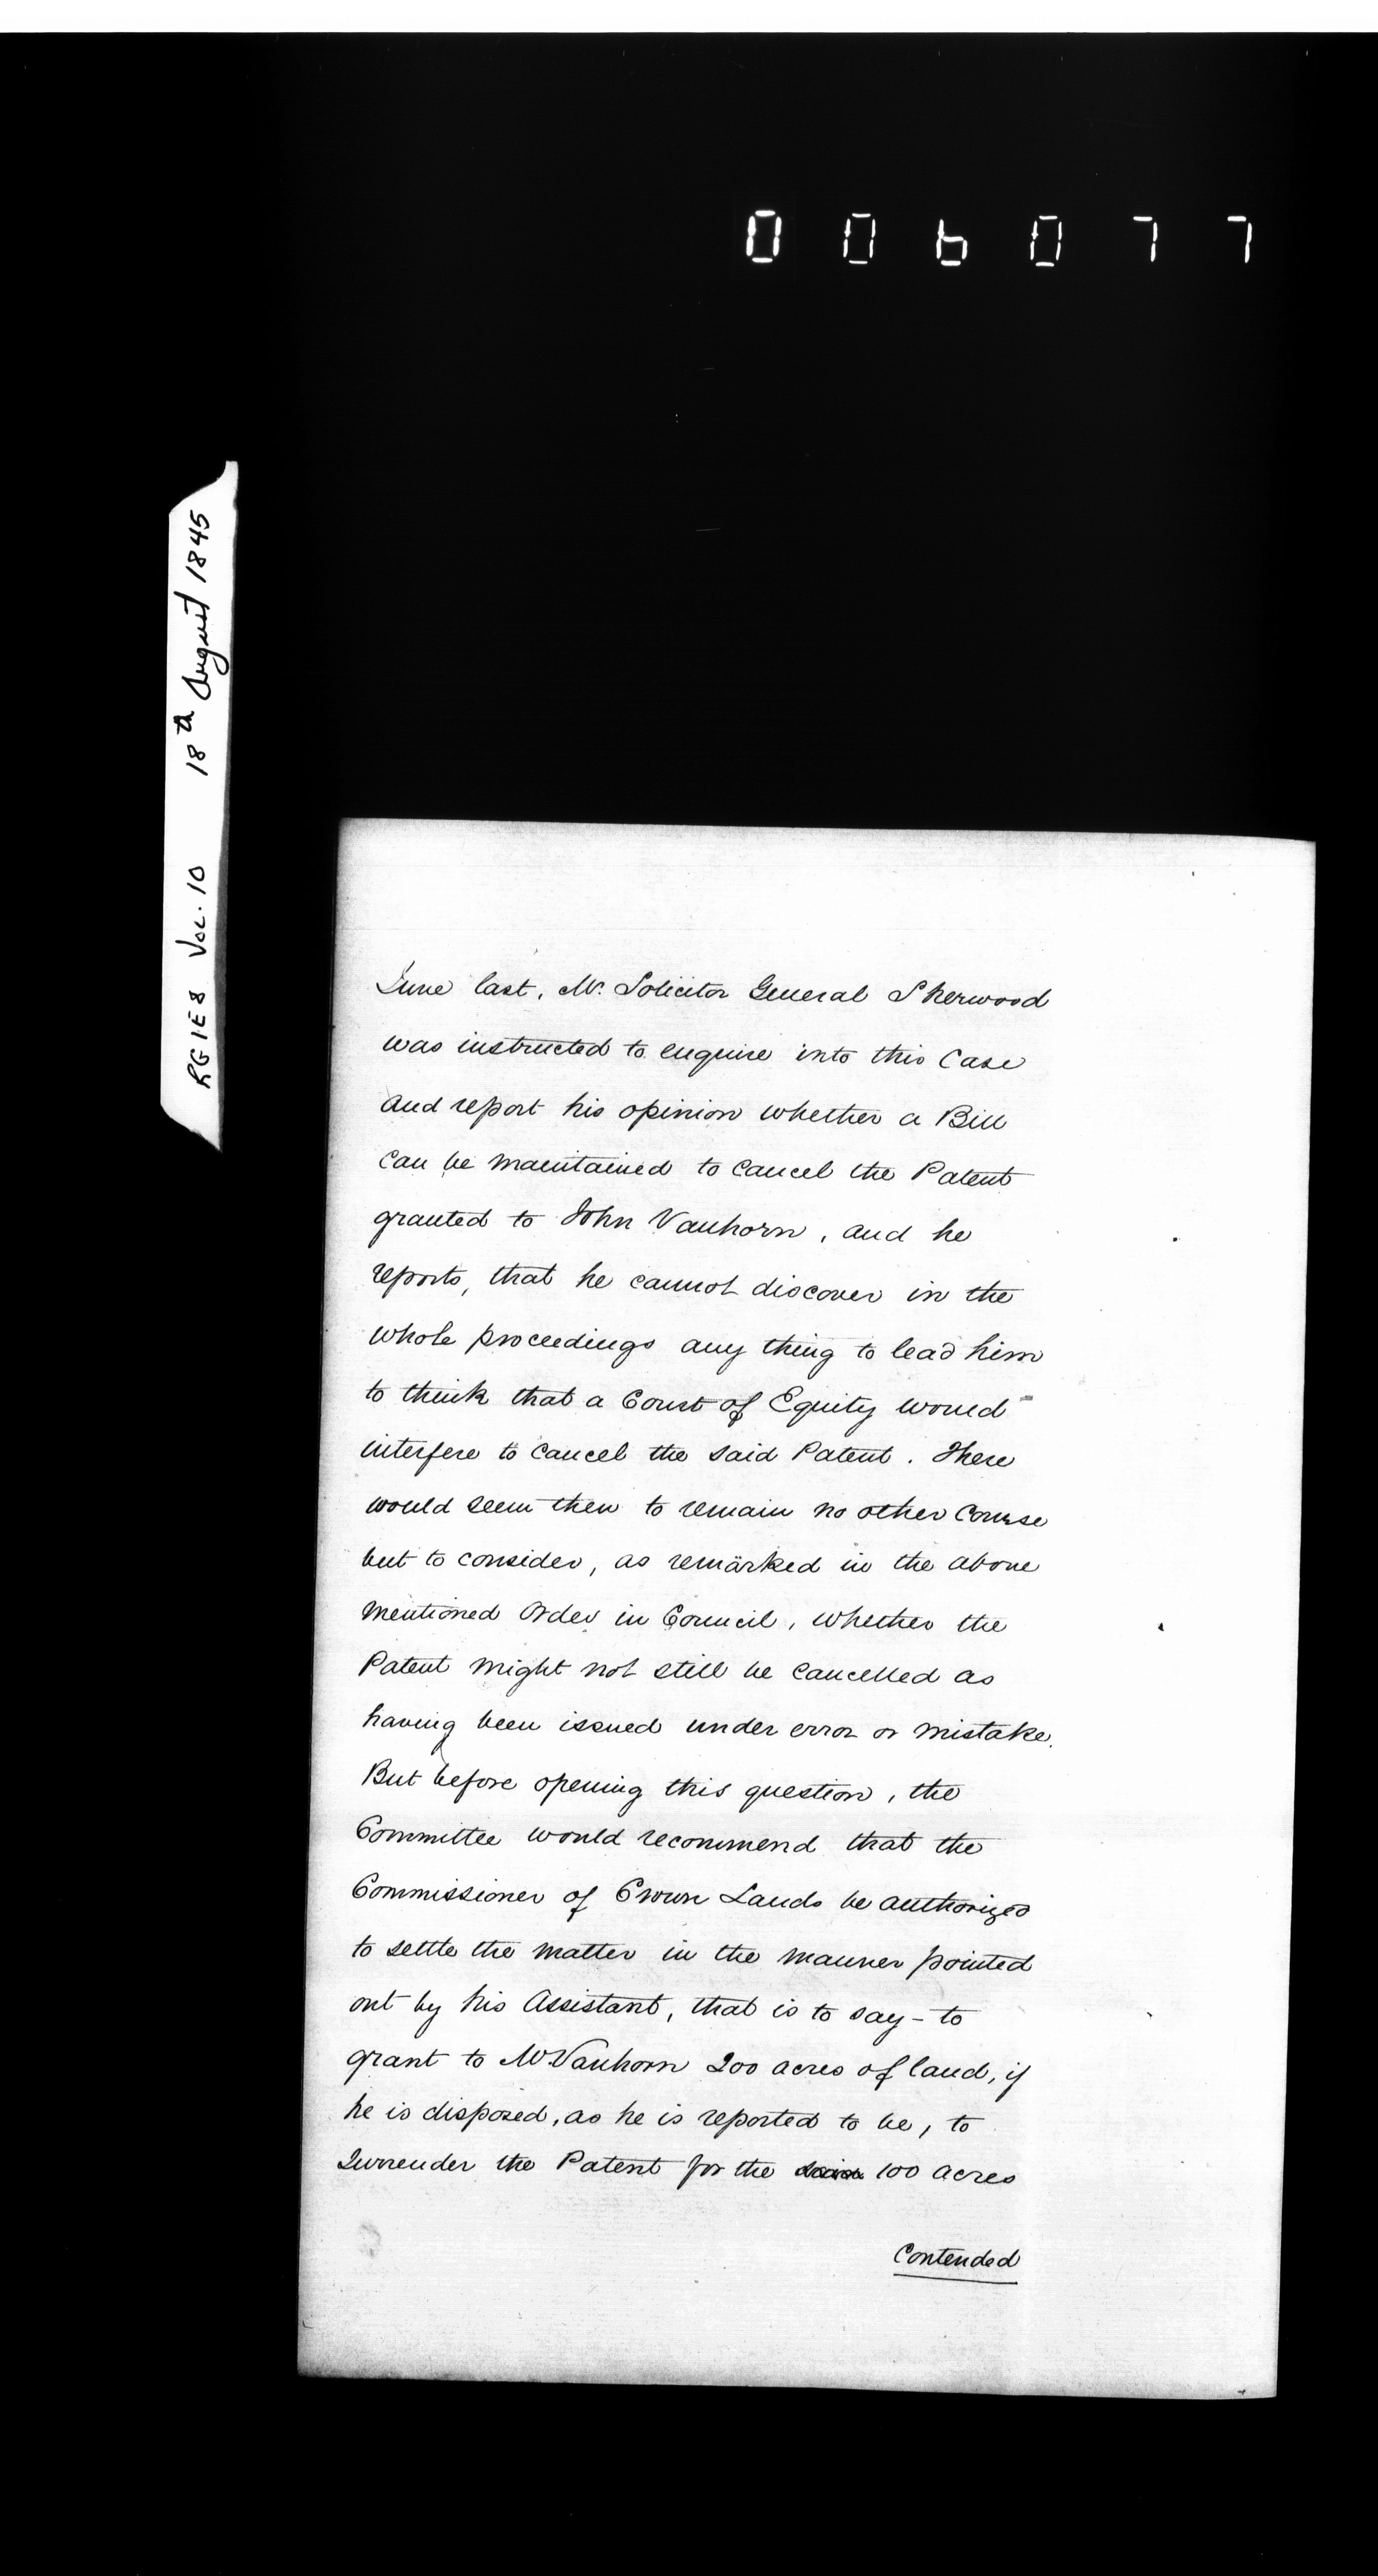 006077
RG1E8 Vol. 10 18th August 1845
June last, Mr. Solicitor General Sherwood
was instructed to enquire into this Case
and report his opinion whether a Bill
can be maintained to cancel the Patent
granted to John Vanhorn, and he
reports, that he cannot discover in the
whole proceedings any thing to lead him
to think that a Court of Equity would
interfere to cancel the said Patent. There
would seem then to remain no other Course
but to consider, as remarked in the above
mentioned Order in Council, whether the
Patent might not still be cancelled as
having been issued under error or mistake.
But before opening this question, the
Committee would recommend that the
Commissioner of Crown Lands be authorized
to settle the matter in the manner pointed
out by his Assistant, that is to say - to
grant to Mr Vanhorn 200 acres of land, if
he is disposed, as he is reported to be, to
Surrender the Patent for the 100 acres
Contended